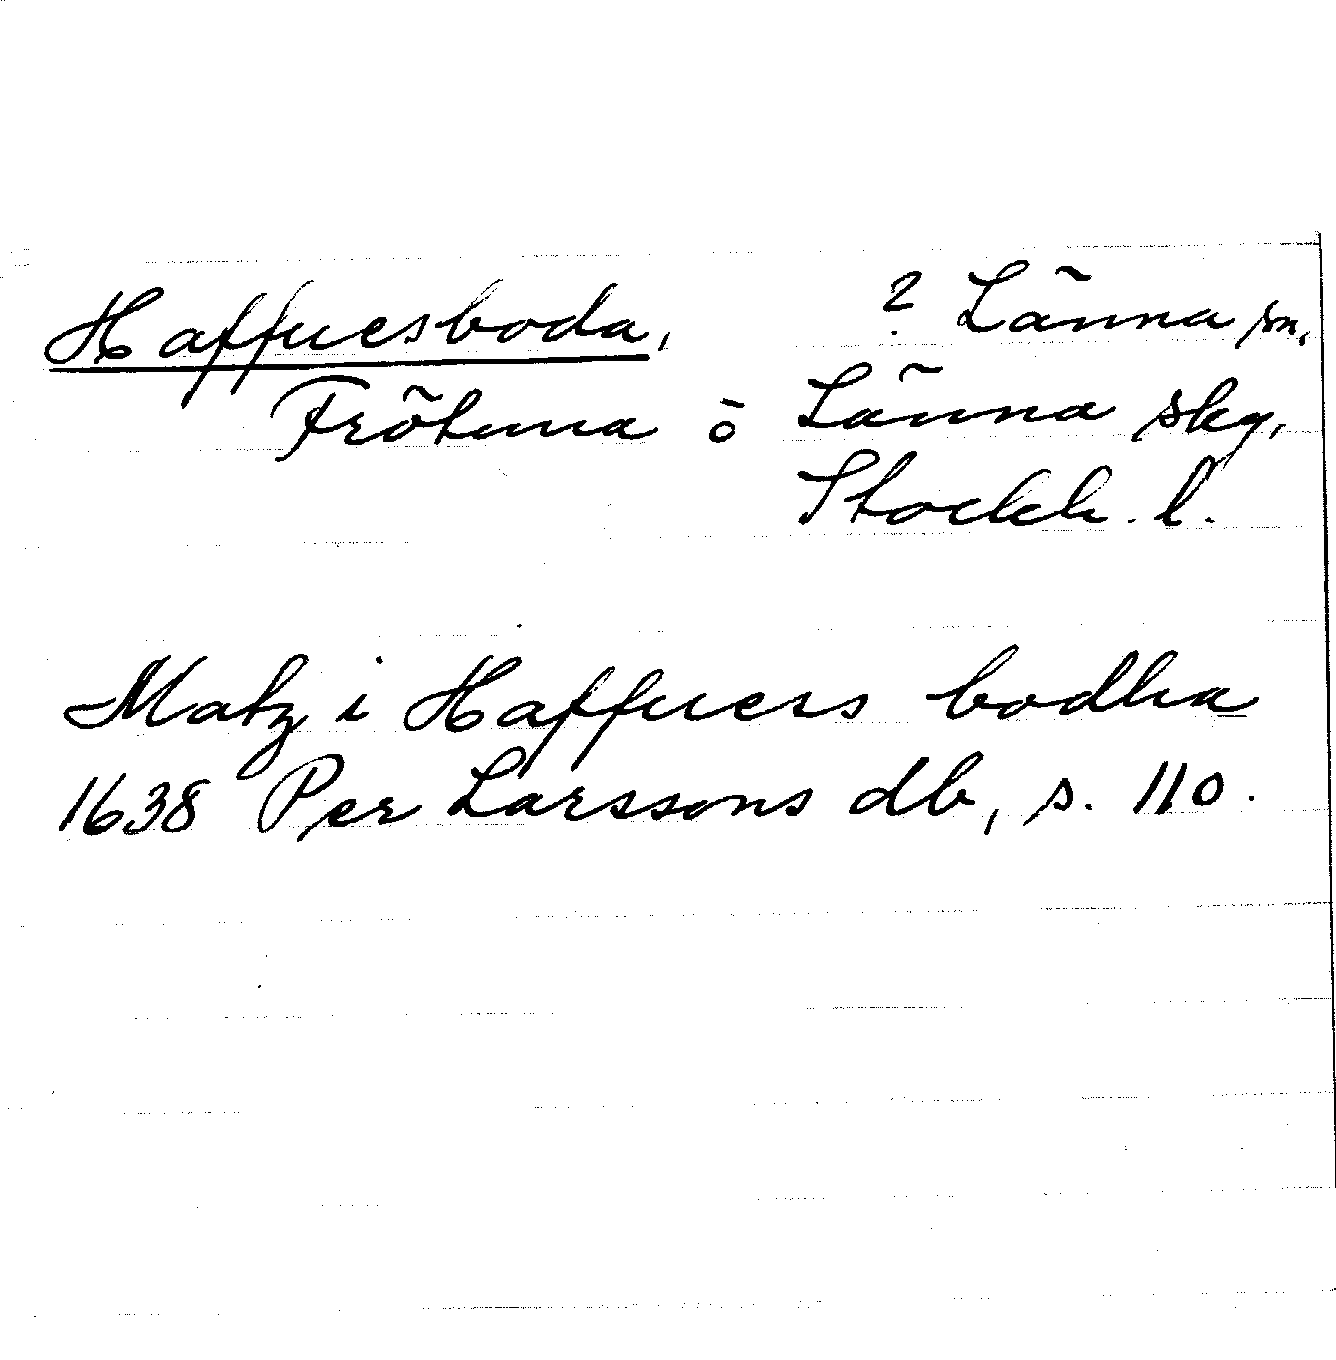 Haffuesboda, ? Länna sn,
Frötuna o Länna skg,
Stockh. l.
Matz i Haffuers bodha
1638 Per Larssons db, s. 110.